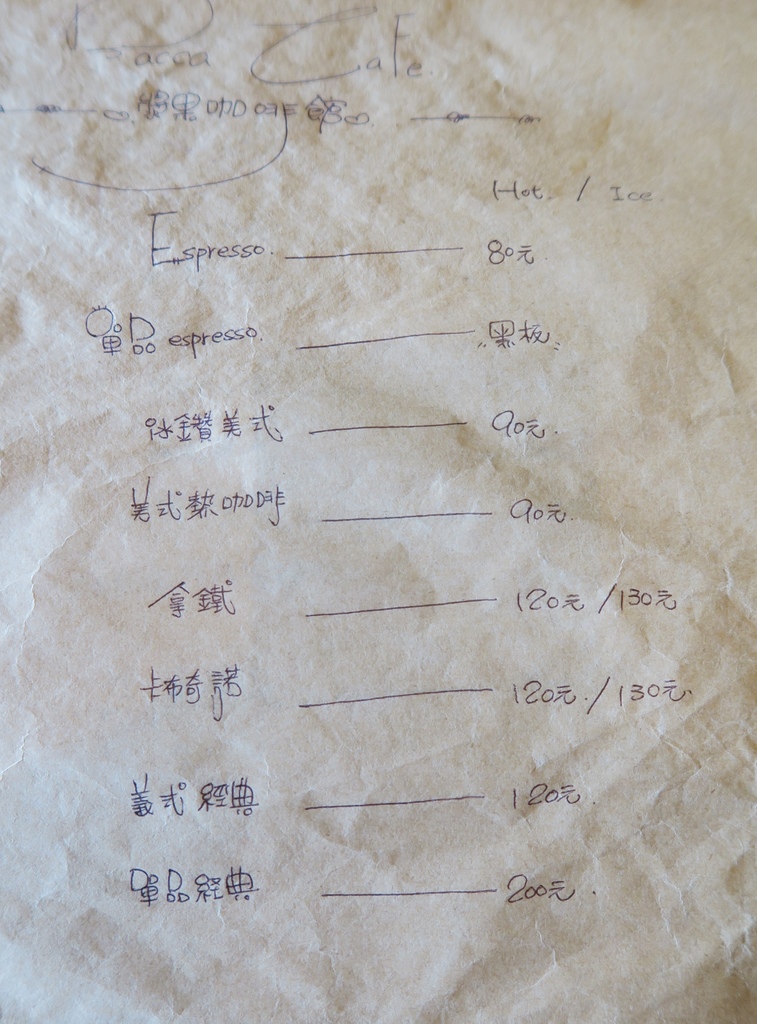 Bacca Cafe.
漿果咖啡館
Hot. / Ice.
Espresso. 80元.
單品 espresso. "黑板"
冰鑽美式 90元.
美式熱咖啡 90元.
拿鐵 120元 / 130元
卡布奇諾 120元. / 130元.
義式經典 120元.
單品經典 200元.